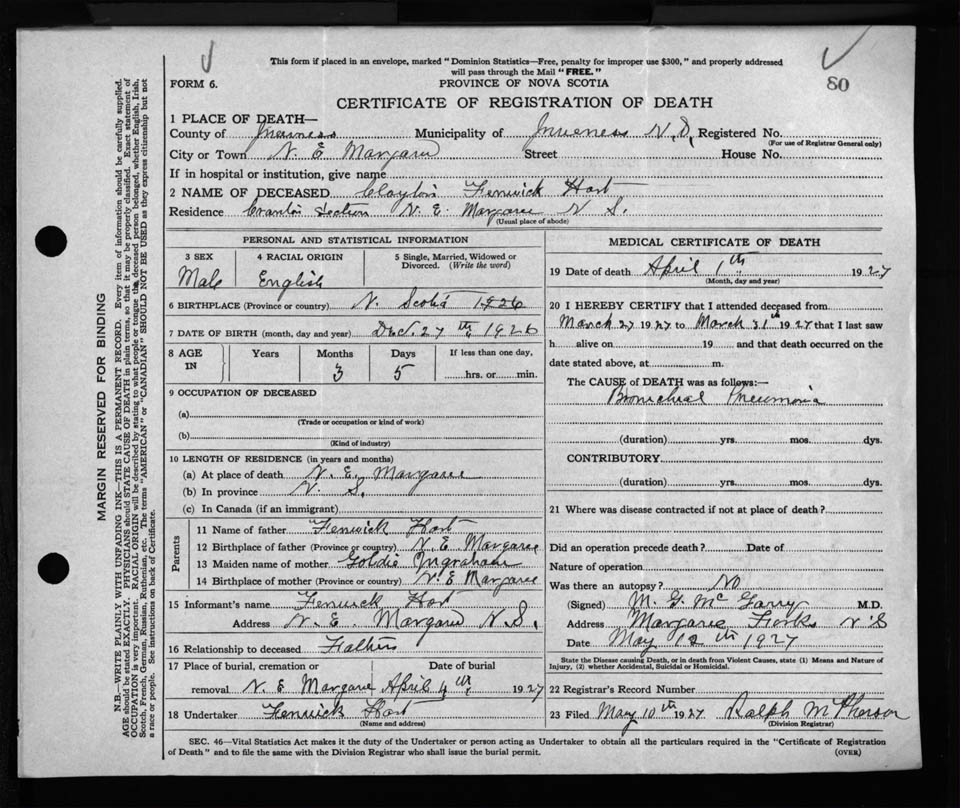 This form if placed in an envelope, marked "Dominion Statistics—Free, penalty for improper use $300," and properly addressed
will pass through the Mail "FREE."
80
FORM 6.
PROVINCE OF NOVA SCOTIA
CERTIFICATE OF REGISTRATION OF DEATH
1 PLACE OF DEATH—
County of Inverness Municipality of Inverness N.S, Registered No.
(For use of Registrar General only)
City or Town N. E Margaree Street House No.
If in hospital or institution, give name
2 NAME OF DECEASED Clayton Fenwick Hart
Residence Section N. E. Margaree N S.
(Usual place of abode)
PERSONAL AND STATISTICAL INFORMATION
3 SEX
4 RACIAL ORIGIN
5 Single, Married, Widowed or
Divorced. (Write the word)
Male English
6 BIRTHPLACE (Province or country) N. Scotia 1926
7 DATE OF BIRTH (month, day and year) Dec. 27th 1926
8 AGE
IN
Years
Months
Days
If less than one day,
3
5
hrs. or min.
9 OCCUPATION OF DECEASED
(a)
(Trade or occupation or kind of work)
(b)
(Kind of industry)
10 LENGTH OF RESIDENCE (in years and months)
(a) At place of death N. E. Margaree
(b) In province N. S.
(c) In Canada (if an immigrant)
Parents
11 Name of father Fenwick Hart
12 Birthplace of father (Province or country) N. E. Margaree
13 Maiden name of mother Goldie Ingraham
14 Birthplace of mother (Province or country) N. E Margaree
15 Informant's name Fenwick Hart
Address N. E. Margaree N. S.
16 Relationship to deceased Father
17 Place of burial, cremation or
Date of burial
removal N. E Margaree April 4th 1927
18 Undertaker Fenwick Hart
(Name and address)
MEDICAL CERTIFICATE OF DEATH
19 Date of death April 1th 1927
(Month, day and year)
20 I HEREBY CERTIFY that I attended deceased from
March 27 1927 to March 31th 1927 that I last saw
h alive on 19 and that death occurred on the
date stated above, at m.
The CAUSE of DEATH was as follows:—
Bronchial Pneumonia
(duration) yrs. mos. dys.
CONTRIBUTORY
(duration) yrs. mos. dys.
21 Where was disease contracted if not at place of death?
Did an operation precede death? Date of
Nature of operation
Was there an autopsy? NO
(Signed) M. G. McGarry M.D.
Address Margaree Forks N S
Date May 12th 1927
State the Disease causing Death, or in death from Violent Causes, state (1) Means and Nature of
Injury, (2) whether Accidental, Suicidal or Homicidal.
22 Registrar's Record Number
23 Filed May 10th 1927 Ralph McPherson
(Division Registrar)
SEC. 46—Vital Statistics Act makes it the duty of the Undertaker or person acting as Undertaker to obtain all the particulars required in the "Certificate of Registration
of Death" and to file the same with the Division Registrar who shall issue the burial permit.
(OVER)
MARGIN RESERVED FOR BINDING
N.B.—WRITE PLAINLY, WITH UNFADING INK—THIS IS A PERMANENT RECORD. Every item of information should be carefully supplied.
AGE should be stated EXACTLY. PHYSICIANS should STATE CAUSE OF DEATH in plain terms, so that it may be properly classified. Exact statement of
OCCUPATION is very important. RACIAL ORIGIN will be described by stating to what people or tongue the deceased person belonged, whether English, Irish,
Scotch, French, German, Russian, Ruthenian, etc. The terms "AMERICAN" or "CANADIAN" SHOULD NOT BE USED as they express citizenship but not
a race or people. See instructions on back of Certificate.